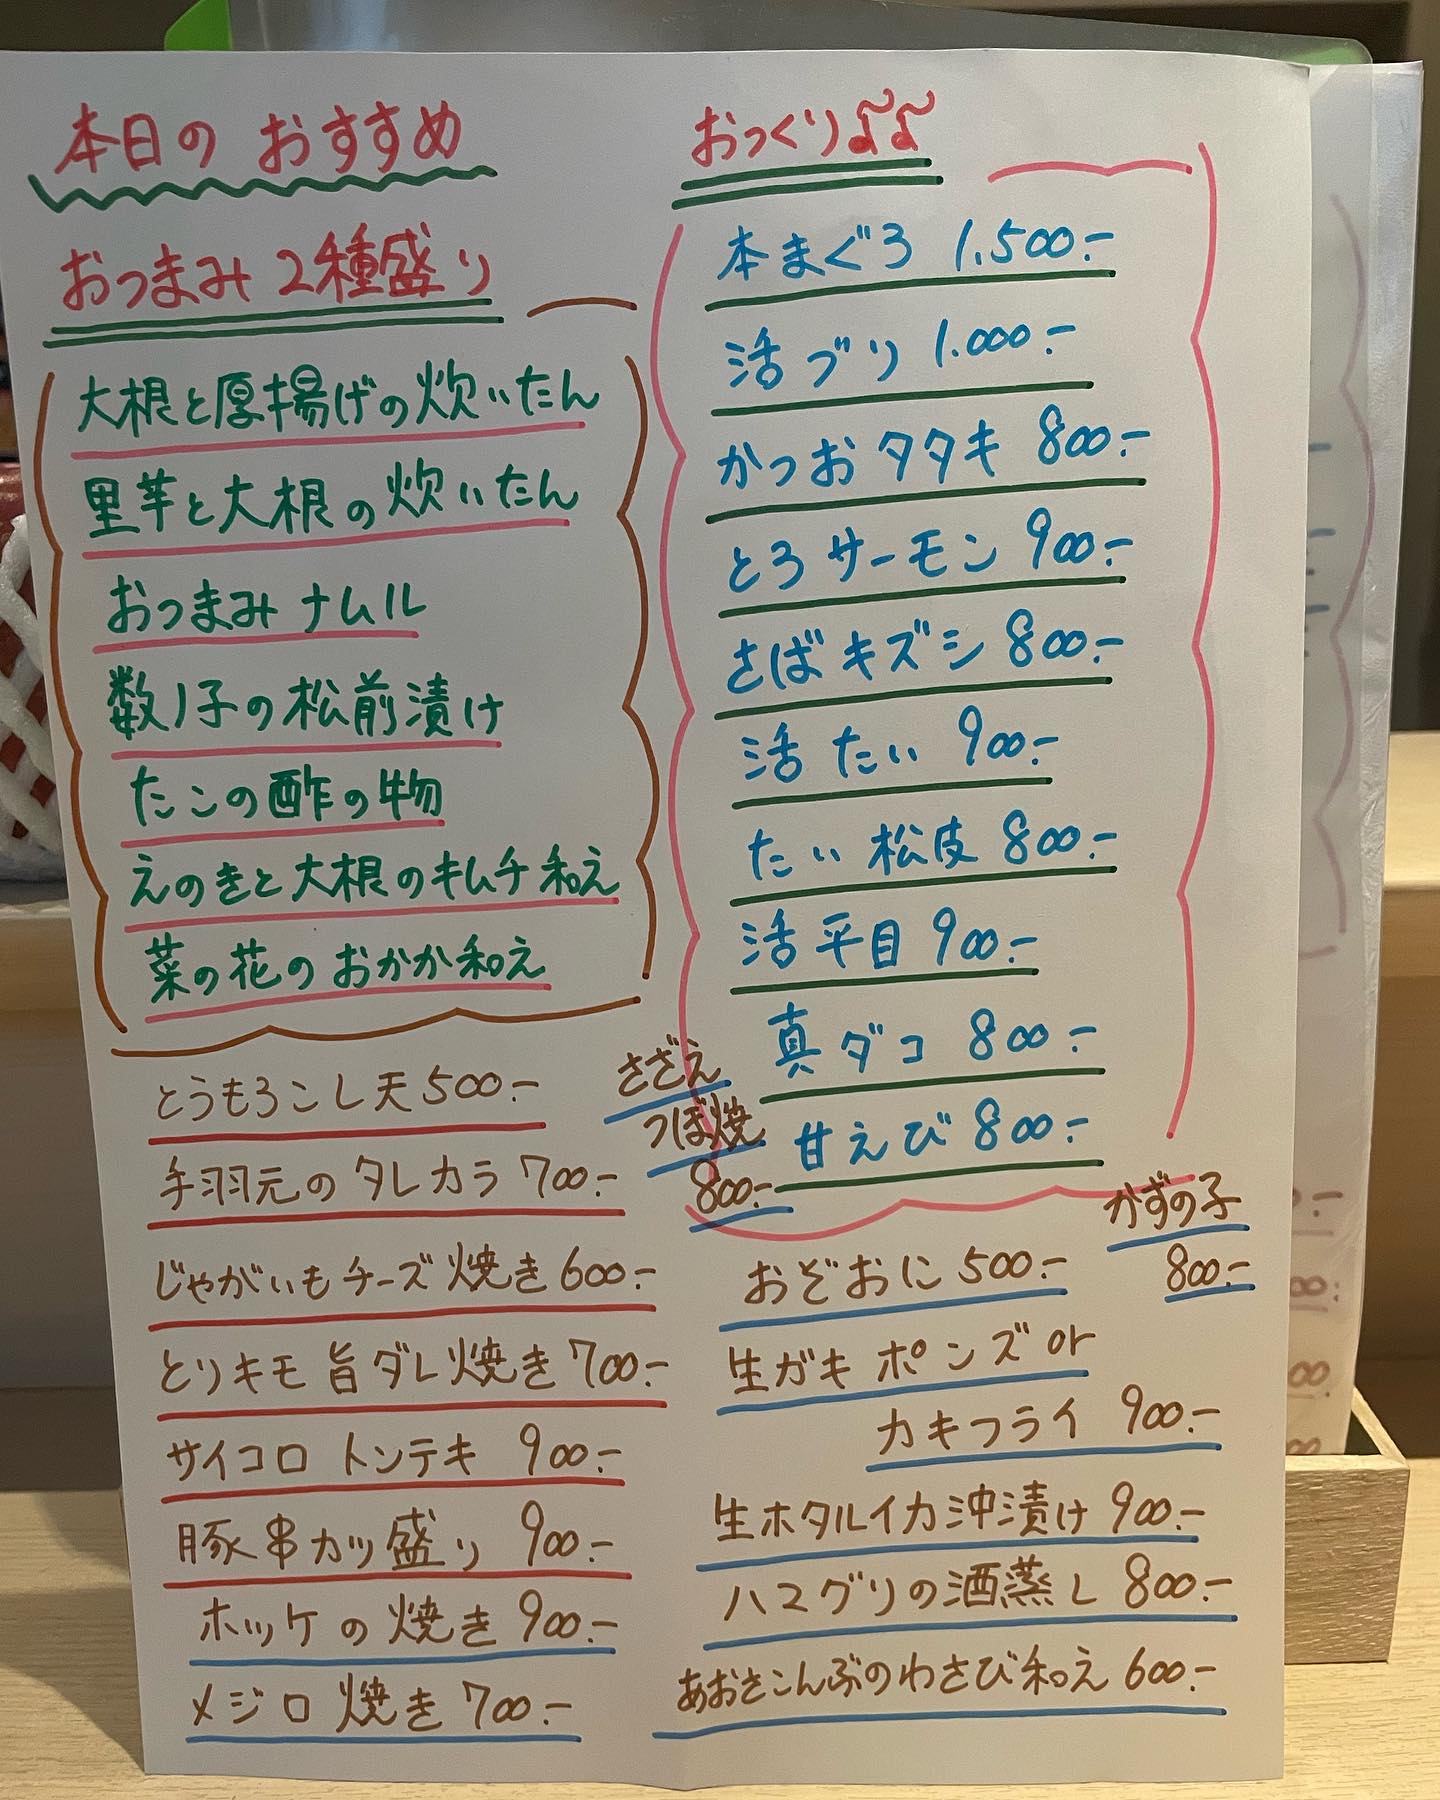 本日の おすすめ
おつまみ 2種盛り
大根と厚揚げの炊いたん
里芋と大根の炊いたん
おつまみ ナムル
数ノ子の松前漬け
たこの酢の物
えのきと大根のキムチ和え
菜の花のおかか和え
とうもろこし天 500.-
手羽元のタレカラ 700.-
じゃがいもチーズ焼き 600.-
とりキモ 旨ダレ焼き 700.-
サイコロ トンテキ 900.-
豚串カツ盛り 900.-
ホッケの焼き 900.-
メジロ焼き 700.-
おつくり
本まぐろ 1.500.-
活ブリ 1.000.-
かつおタタキ 800.-
とろサーモン 900.-
さばキズシ 800.-
活たい 900.-
たい松皮 800.-
活平目 900.-
真ダコ 800.-
甘えび 800.-
さざえ
つぼ焼
800.-
かずの子
800.-
おぞおに 500.-
生ガキ ポンズ or
カキフライ 900.-
生ホタルイカ沖漬け 900.-
ハマグリの酒蒸し 800.-
あおさこんぶのわさび和え 600.-